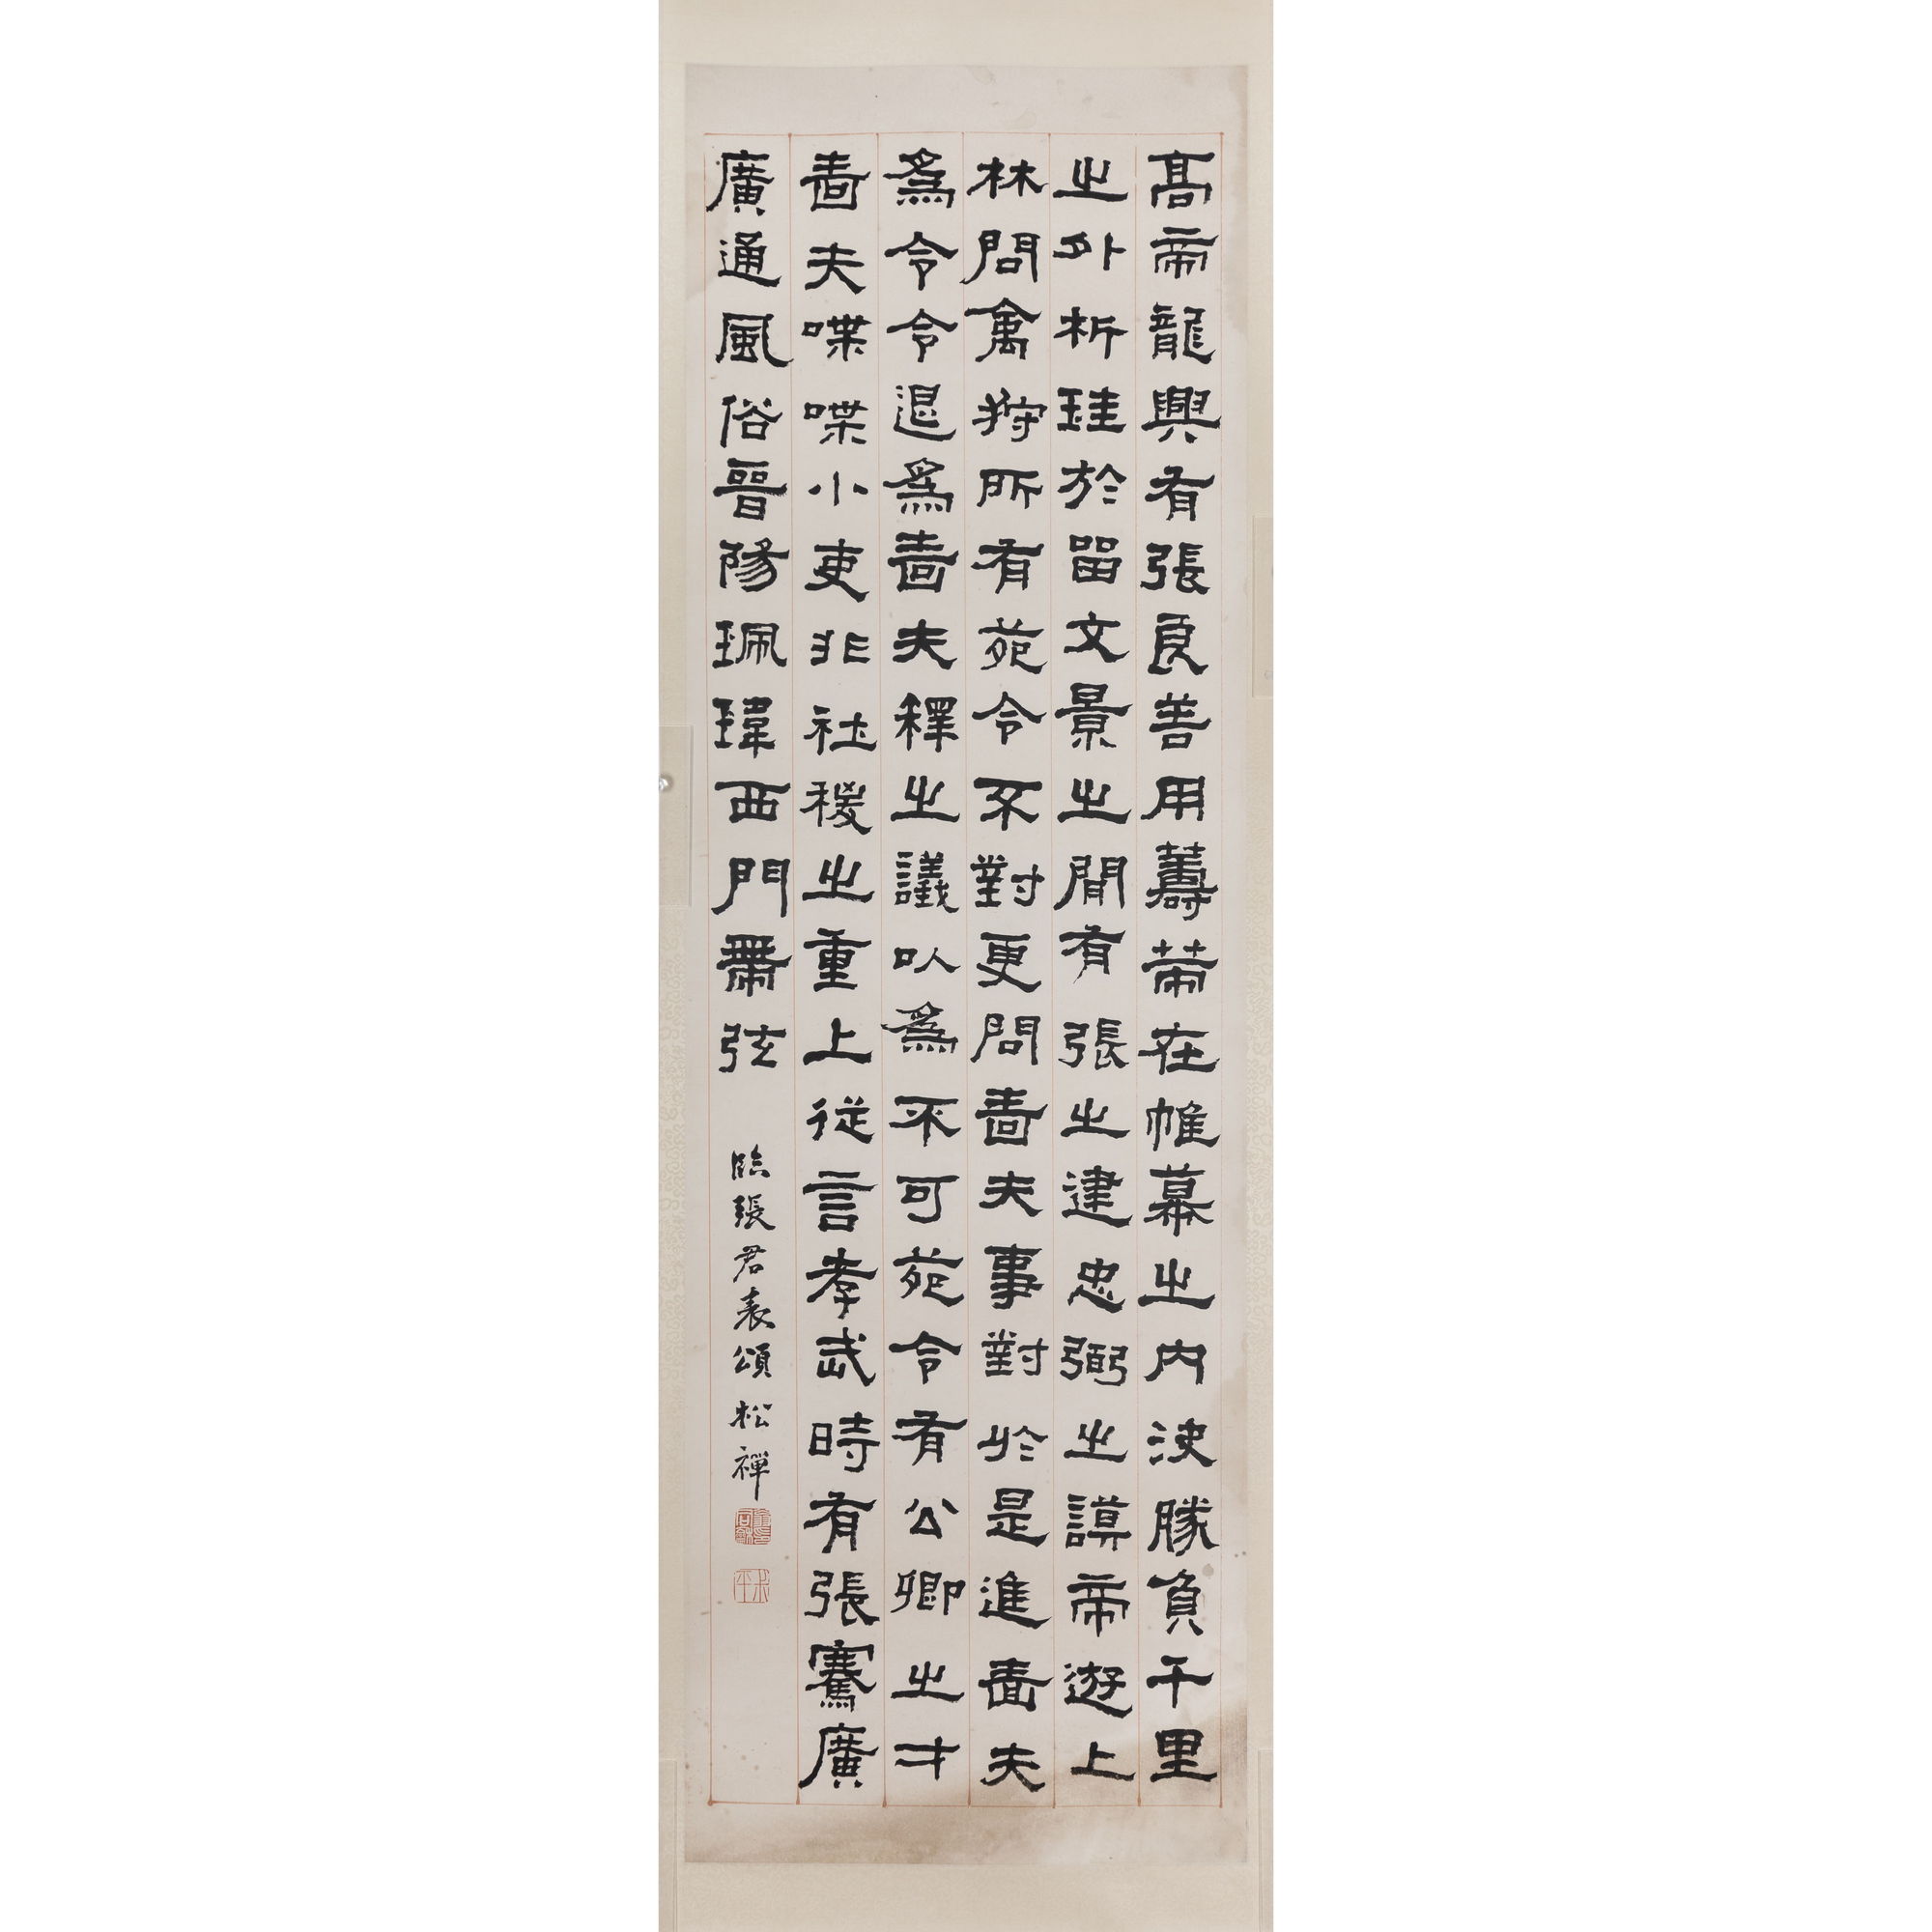 高帝龍興有張良善用籌茦在帷幕之內決勝負千里
之外析珪於留文景之閒有張之建忠弼之謨帝遊上
林問禽狩所有苑令不對更問嗇夫事對於是進嗇夫
爲令令退爲嗇夫釋之議以爲不可苑令有公卿之才
嗇夫喋喋小吏非社稷之重上從言孝武時有張騫廣
廣通風俗晉陽珮瑋西門帶弦
臨張君表頌 松禪